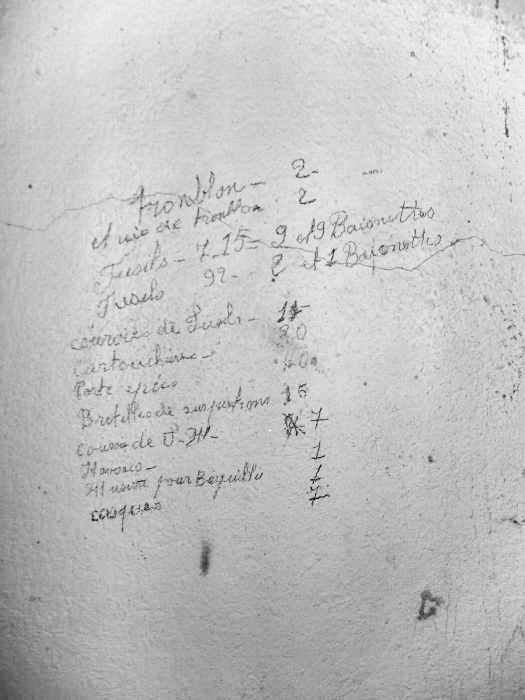 tromblon - 2
et vis de tromblon 2
Fusils - 7_15 = 9 et 9 Baionettes
Fusils 92 - 2 et 1 Baionettes
courroies de Fusils - 15
Cartouchières - 20
Porte épée 20
Bretelles de suspentions 15
de F-M- 7
- 1
pour Bequille 1
casques 7